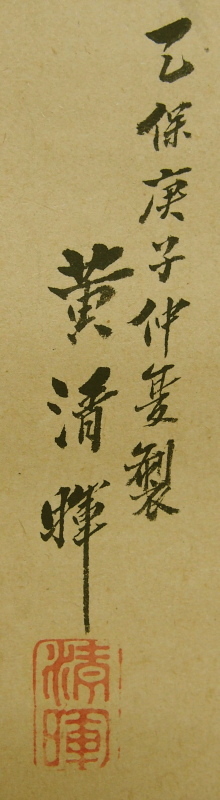 天保庚子仲夏製
黄清暉
清暉